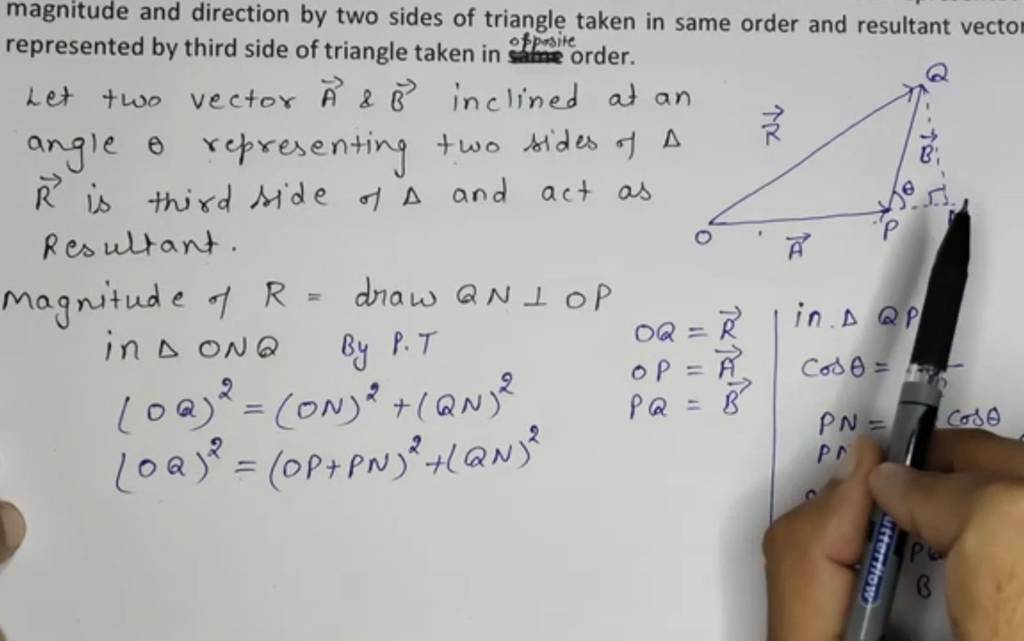 magnitude and direction by two sides of triangle taken in same order and resultant vector
represented by third side of triangle taken in opposite order.
Let two vector A⃗ & B⃗ inclined at an
angle θ representing two sides of Δ
R⃗ is third side of Δ and act as
Resultant.
Magnitude of R = draw QN ⊥ OP
in Δ ONQ By P.T
(OQ)² = (ON)² + (QN)²
(OQ)² = (OP+PN)² + (QN)²
Q
R⃗
B⃗
θ
O
P
A⃗
OQ = R⃗
OP = A⃗
PQ = B⃗
in Δ QP
Cosθ =
PN = Cosθ
B